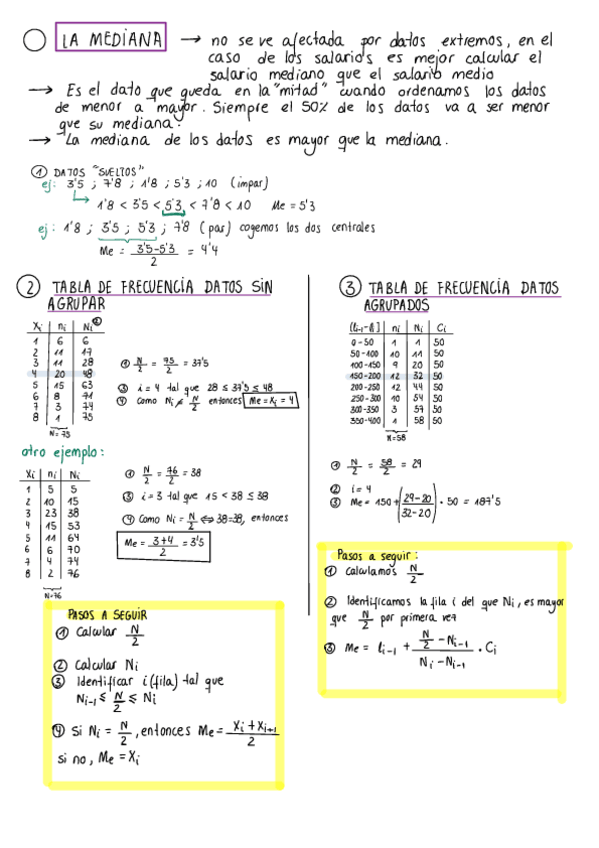 LA MEDIANA → no se ve afectada por datos extremos, en el
caso de los salarios es mejor calcular el
salario mediano que el salario medio
→ Es el dato que queda en la "mitad" cuando ordenamos los datos
de menor a mayor. Siempre el 50% de los datos va a ser menor
que su mediana.
→ La mediana de los datos es mayor que la mediana.
① DATOS "SUELTOS"
ej: 3'5 ; 7'8 ; 1'8 ; 5'3 ; 10 (impar)
1'8 < 3'5 < 5'3 < 7'8 < 10 Me = 5'3
ej: 1'8 ; 3'5 ; 5'3 ; 7'8 (par) cogemos los dos centrales
Me = 3'5-5'3 / 2 = 4'4
② TABLA DE FRECUENCIA DATOS SIN
AGRUPAR
Xi ni Ni ②
1 6 6
2 11 17
3 11 28
4 20 48
5 15 63
6 8 71
7 3 74
8 1 75
N = 75
① N/2 = 75/2 = 37'5
③ i = 4 tal que 28 ≤ 37'5 ≤ 48
④ Como Ni ≠ N/2 entonces Me = Xi = 4
otro ejemplo:
Xi ni Ni
1 5 5
2 10 15
3 23 38
4 15 53
5 11 64
6 6 70
7 4 74
8 2 76
N=76
① N/2 = 76/2 = 38
③ i = 3 tal que 15 < 38 ≤ 38
④ Como Ni = N/2 ⇔ 38=38, entonces
Me = 3+4 / 2 = 3'5
PASOS A SEGUIR
① Calcular N/2
② Calcular Ni
③ Identificar i (fila) tal que
Ni-1 ≤ N/2 ≤ Ni
④ Si Ni = N/2, entonces Me = Xi + Xi+1 / 2
si no, Me = Xi
③ TABLA DE FRECUENCIA DATOS
AGRUPADOS
ni Ni Ci
0-50 1 1 50
50-100 10 11 50
100-150 9 20 50
150-200 12 32 50
200-250 12 44 50
250-300 10 54 50
300-350 3 57 50
350-400 1 58 50
N=58
① N/2 = 58/2 = 29
② i = 4
③ Me = 150 + (29-20 / 32-20) · 50 = 187'5
Pasos a seguir:
① Calculamos N/2
② Identificamos la fila i del que Ni, es mayor
que N/2 por primera vez
③ Me = li-1 + (N/2 - Ni-1) / (Ni - Ni-1) · Ci